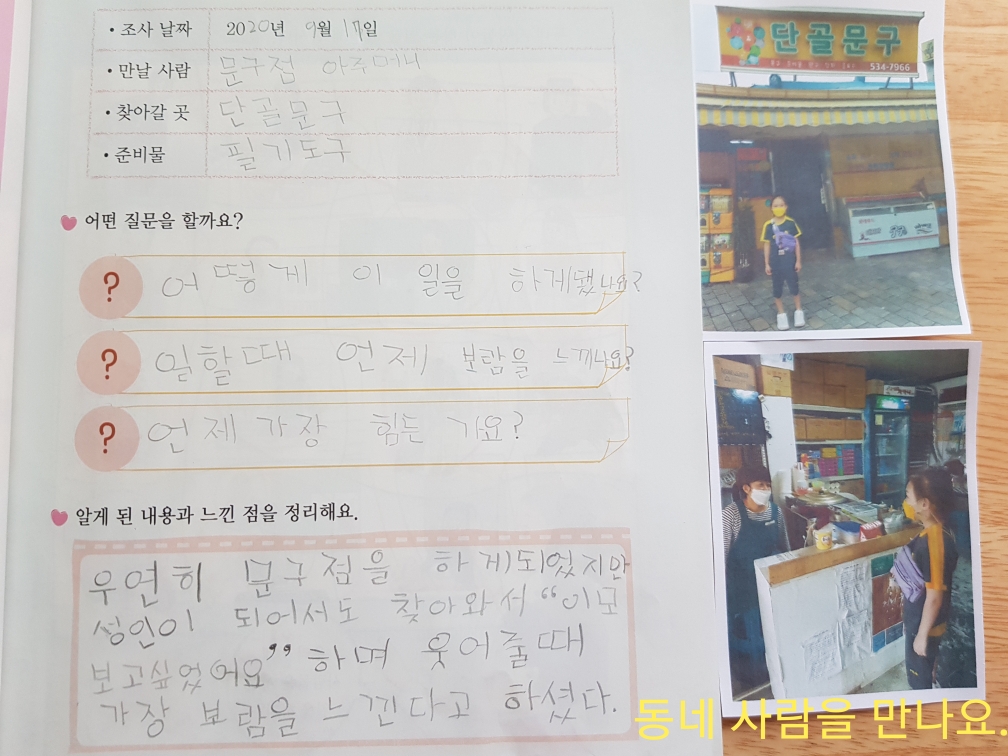 • 조사 날짜 2020년 9월 17일
• 만날 사람 문구점 아주머니
• 찾아갈 곳 단골문구
• 준비물 필기도구
어떤 질문을 할까요?
? 어떻게 이 일을 하게됐나요?
? 일할때 언제 보람을 느끼나요?
? 언제 가장 힘든 가요?
알게 된 내용과 느낀 점을 정리해요.
우연히 문구점을 하게되었지만
성인이 되어서도 찾아와서 “이모
보고싶었어요” 하며 웃어줄때
가장 보람을 느낀다고 하셨다.
단골문구
534-7966
동네 사람을 만나요.